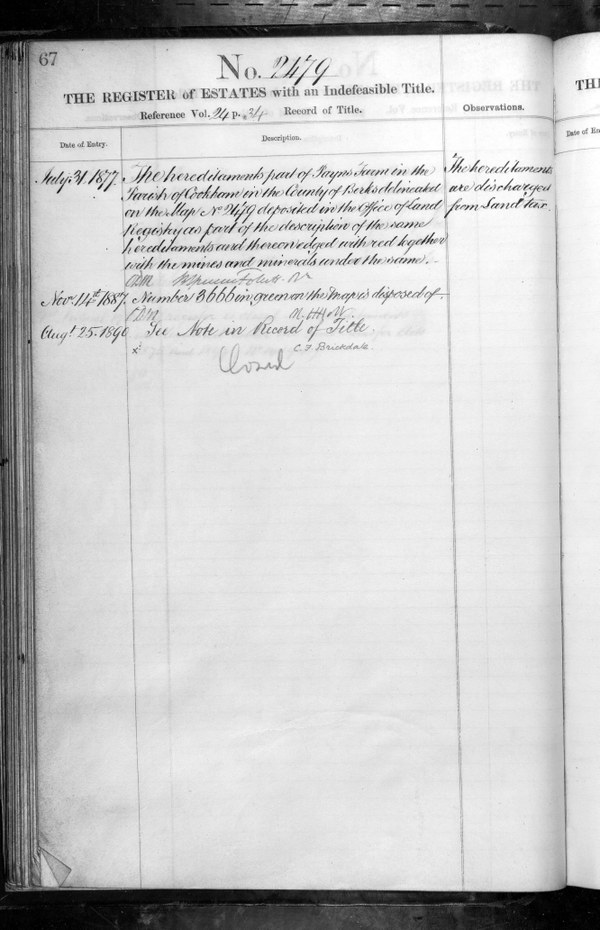 67
No. 2479
THE REGISTER of ESTATES with an Indefeasible Title.
Reference Vol. 24 p. 34 Record of Title.
Observations.
Date of Entry.
Description.
July 31. 1877.
The hereditaments part of Payns Farm in the
Parish of Cookham in the County of Berks delineated
on the Map No 2479 deposited in the Office of Land
Registry as part of the description of the same
hereditaments and thereon edged with red together
with the mines and minerals under the same.
The hereditaments
are discharged
from Land tax.
Novr. 14th 1887.
Number 3666 in green on the map is disposed of
Augt. 25. 1890
See Note in Record of Title.
x
C. F. Brickdale.
Closed
TH
Date of En